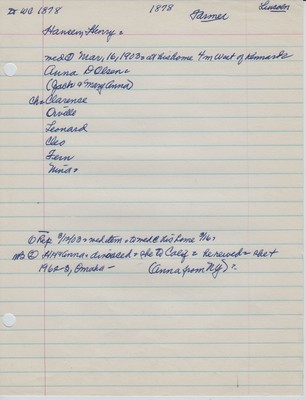 Dr WA 1878 1878 Farmer Lincoln
Hansen, Henry =
med ① Mar, 16, 1903 = at his home 4 m west of Kennards
Anna D Olson =
(Jack & Mary Anna)
Ch = Clarence
Orville
Leonard
Cleo
Fern
Nina =
① Rep 3/13/03 = med item = to med @ his home 3/16 =
② H H & Anna = divorced = she to Calif = he remed = she +
1962 = D, Omaha — (Anna from NY) =